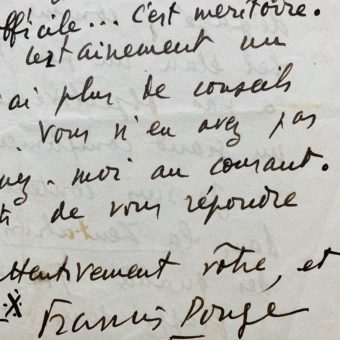 fficile... c'est méritoire.
certainement un
'ai plus de conseils
. Vous n'en avez pas
ez-moi au courant.
de vous répondre
ttentivement vôtre, et
Francis Ponge